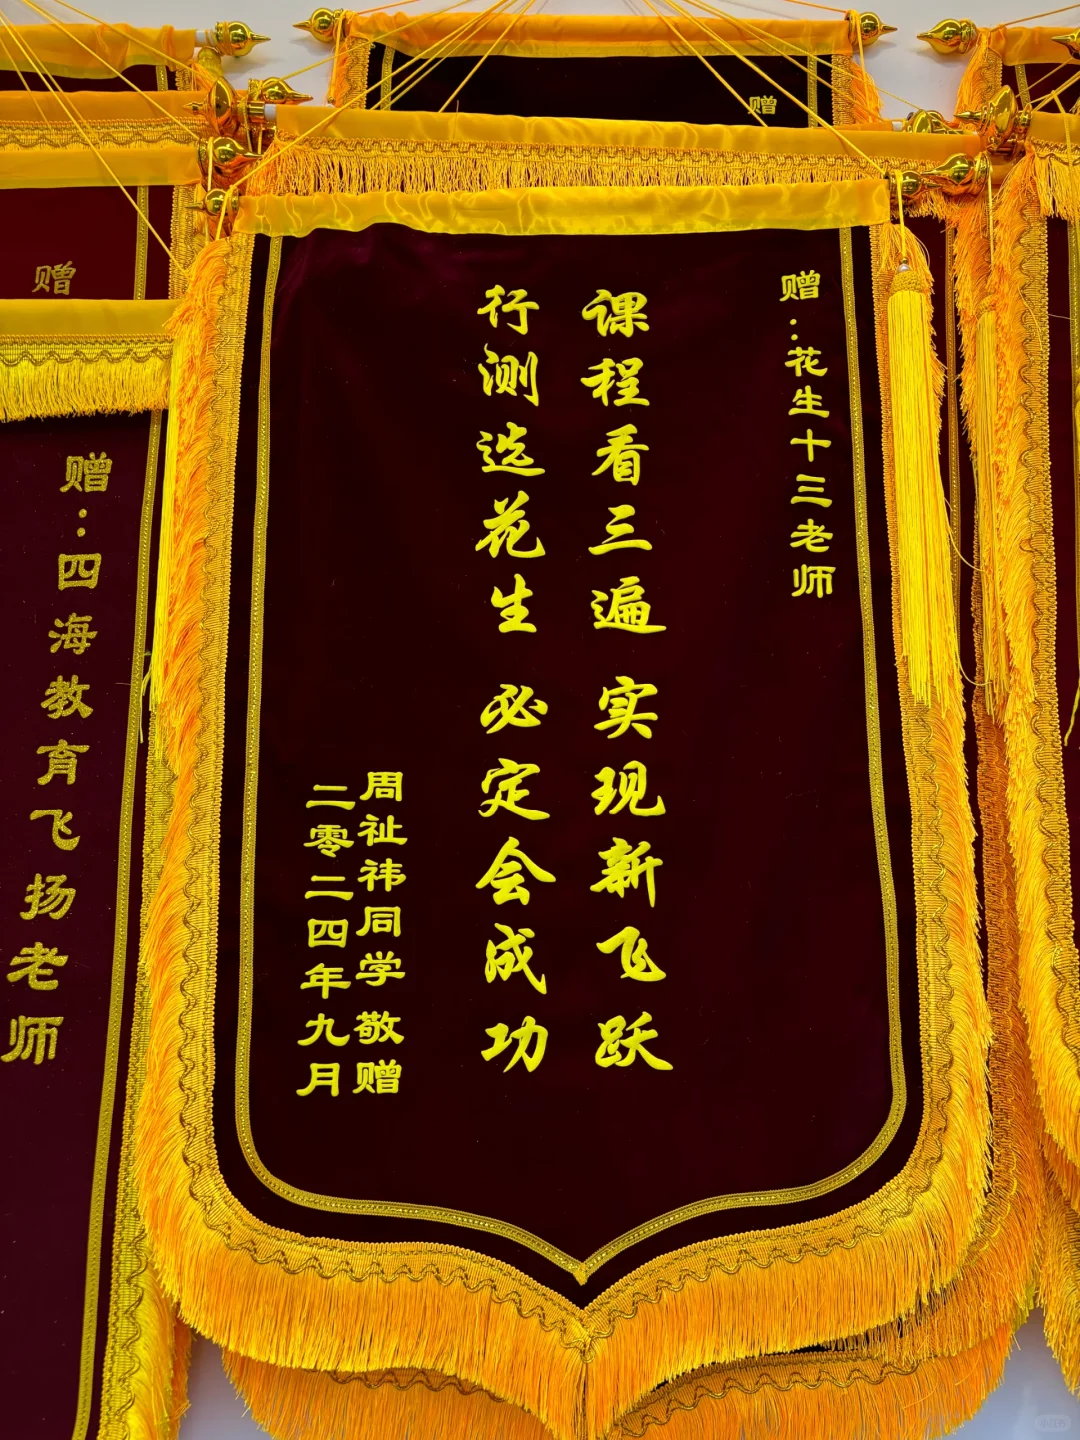 赠：花生十三老师
课程看三遍 实现新飞跃
行测选花生 必定会成功
周祉祎同学敬赠
二零二四年九月
赠：四海教育飞扬老师
赠
赠